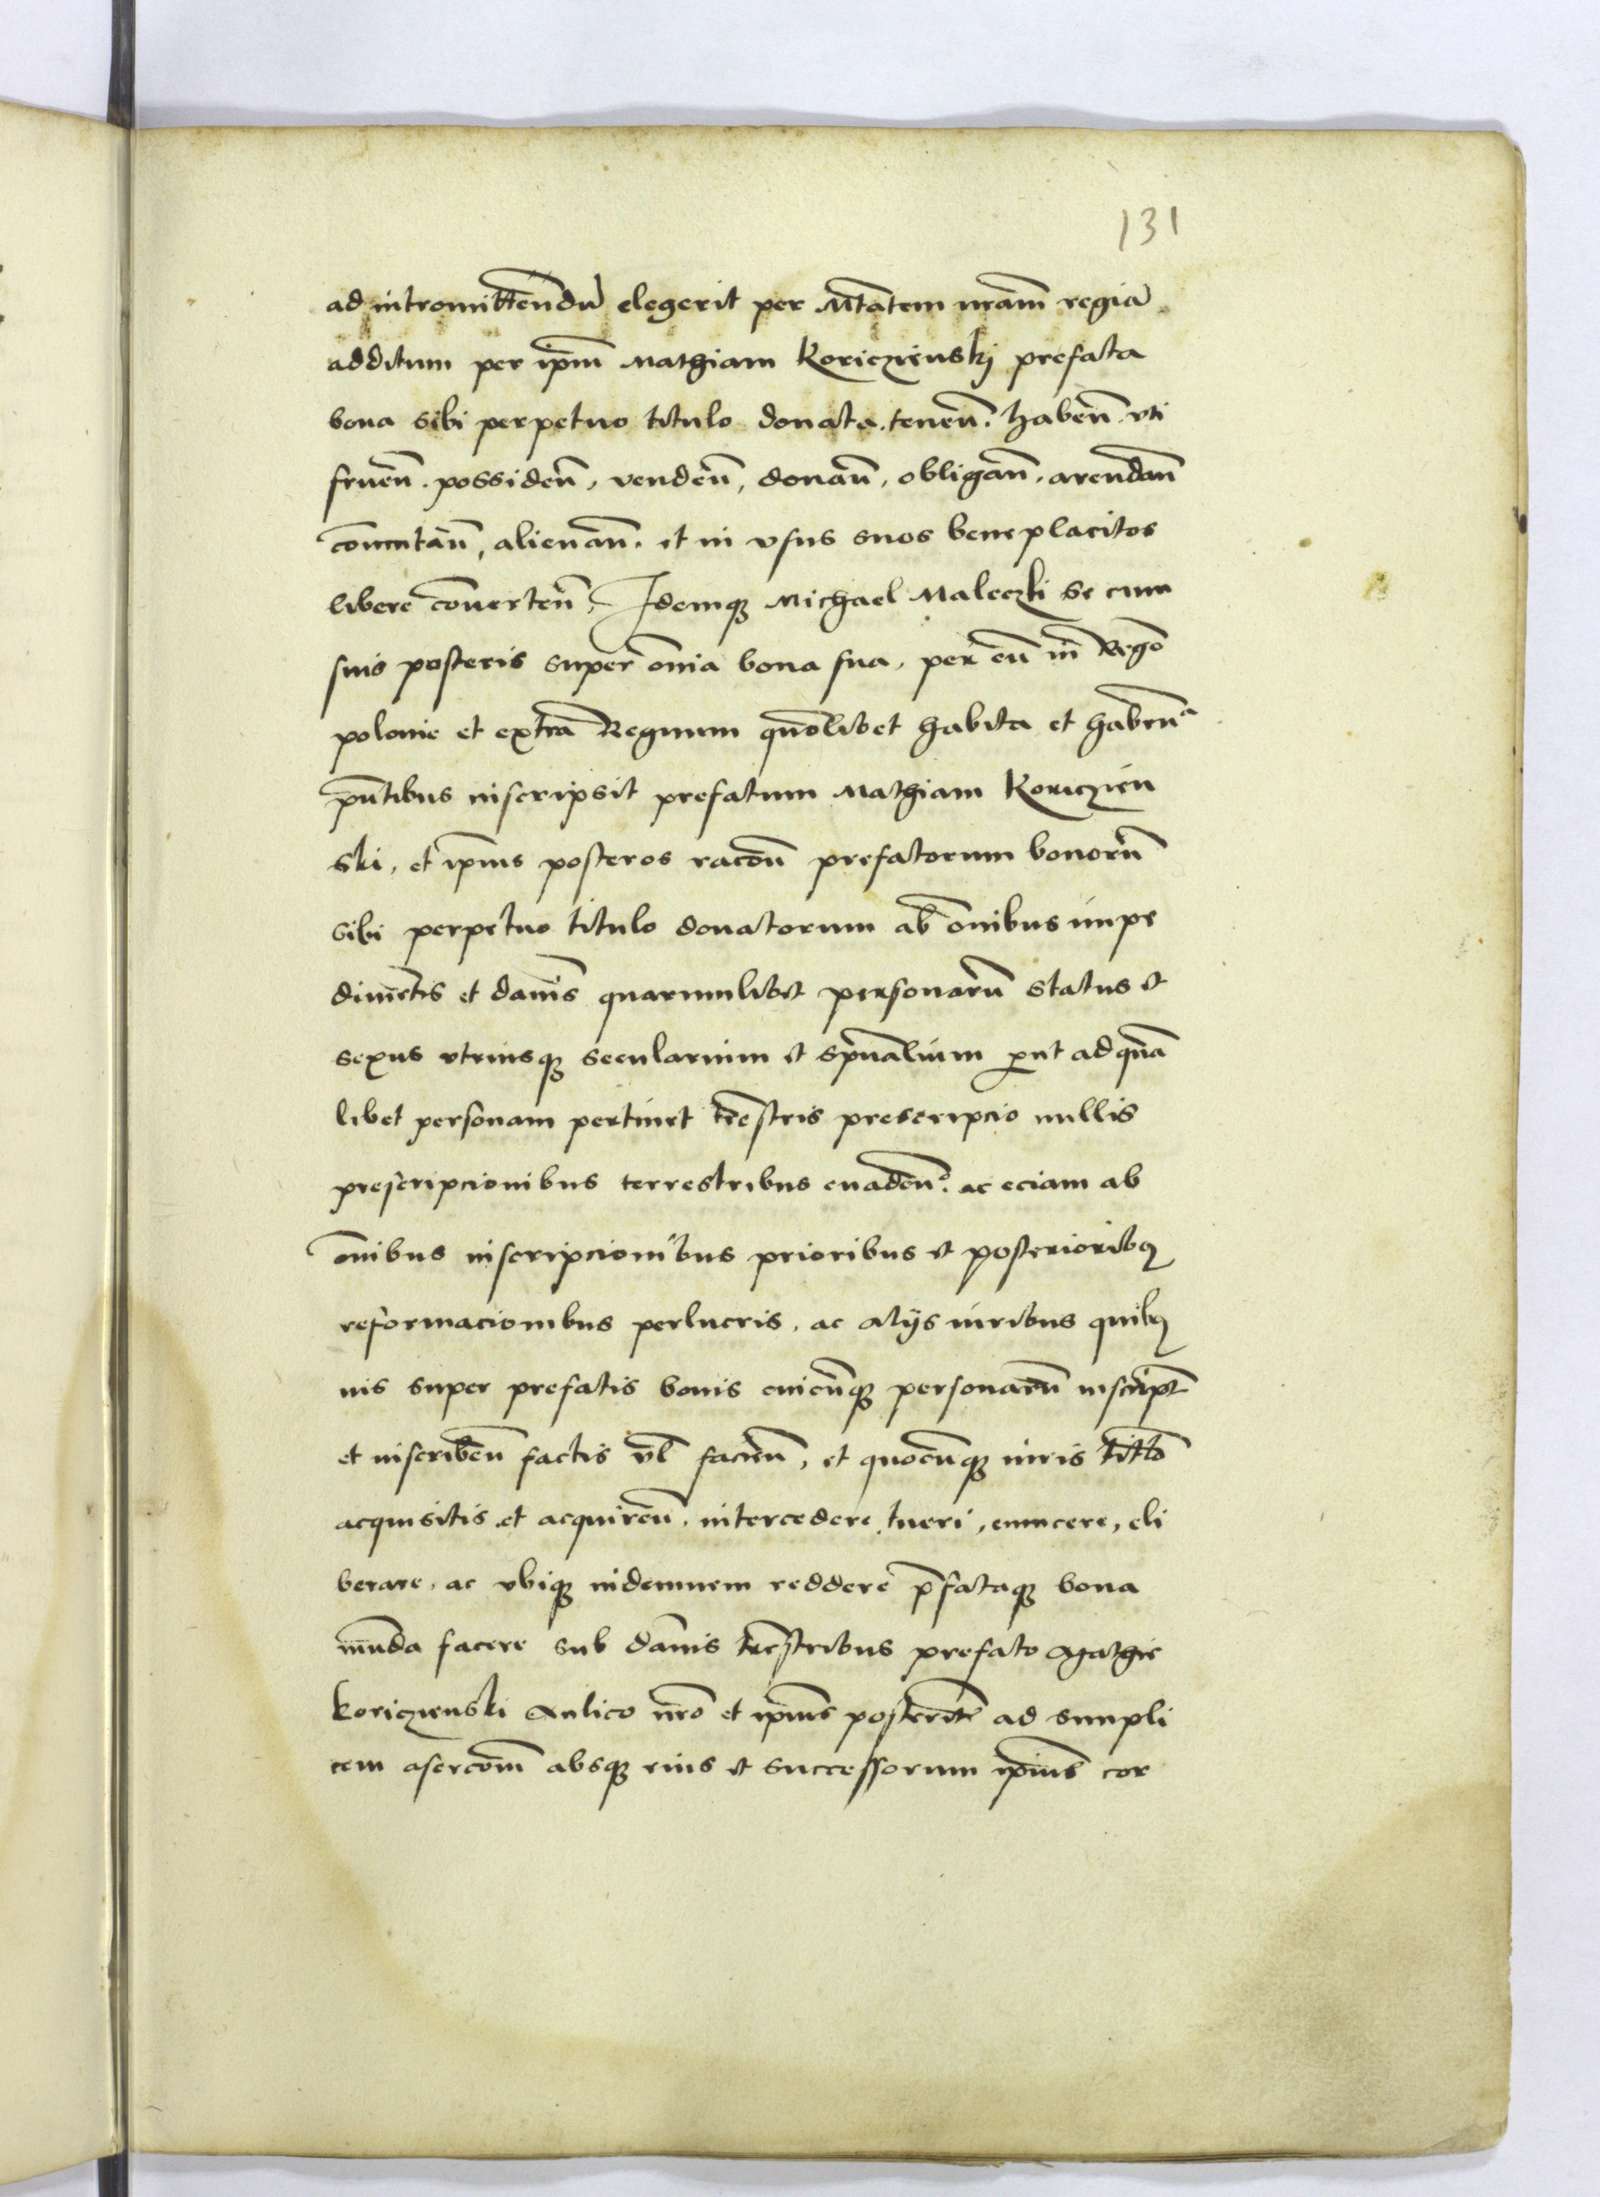 131
ad intromittendũ elegerit per Mtãtem nrãm regiã
additum per ipm̃ Mathiam Koriczienskj prefata
bona sibi perpetuo titulo donata. teneñ. habeñ. vti
frueñ. possideñ, vendeñ, donañ, obligañ, arendañ
com̃utañ, alienañ. et in vsus suos beneplacitos
libere conuerteñ, Idemq3 Michael Maleczki se cum
suis posteris super om̃ia bona sua, per eũ in Regño
polonie et extra Regnum quõlibet habita et habeñᵃ
pñtibus inscripsit prefatum Mathiam Koriczien
ski, et ipĩus posteros racõñ prefatorum bonorũ
sibi perpetuo titulo donatorum ab om̃ibus impe
dimẽtis et dam̃is quarumlibet personarũ status et
sexus vtriusq3 secularium et spũalium put ad quã
libet personam pertinet trẽstris prescripcio nullis
prescripcionibus terrestribus euadeñ. ac eciam ab
om̃ibus inscripcionibus prioribus et posteriorib9
reformacionibus perlucris, ac alijs iuribus quib9
uis super prefatis bonis cuicũq3 personarũ inscript
et inscribeñ factis vl̃ facieñ, et quocũq3 iuris titlõ
acquisitis et acquireñ. intercedere tueri, euincere, eli
berare, ac vbiq3 indemnem reddere p̃fataq3 bona
mũda facere sub dam̃is trẽstribus prefato Mathie
Koriczienski Aulico nr̃o et ipĩus posterit̃e ad simpli
cem asercõm̃ absq3 eius et successorum ipĩus cor